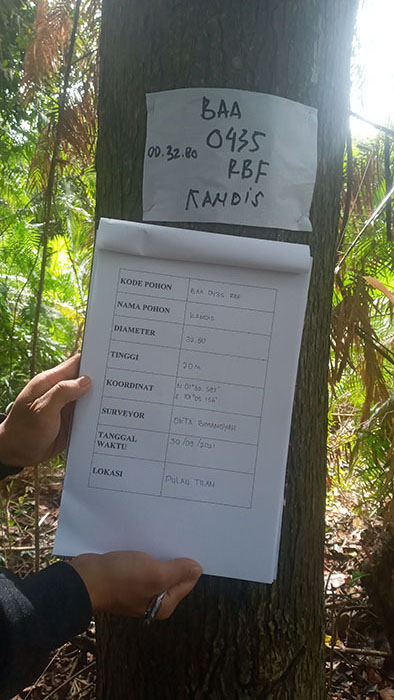 BAA
0435
DD.32.80
RBF
KANDIS
KODE POHON BAA 0435 RBF
NAMA POHON KANDIS
DIAMETER 32.80
TINGGI 20 M
KOORDINAT
SURVEYOR
TANGGAL WAKTU 30/09/2021
LOKASI PULAU TILAN